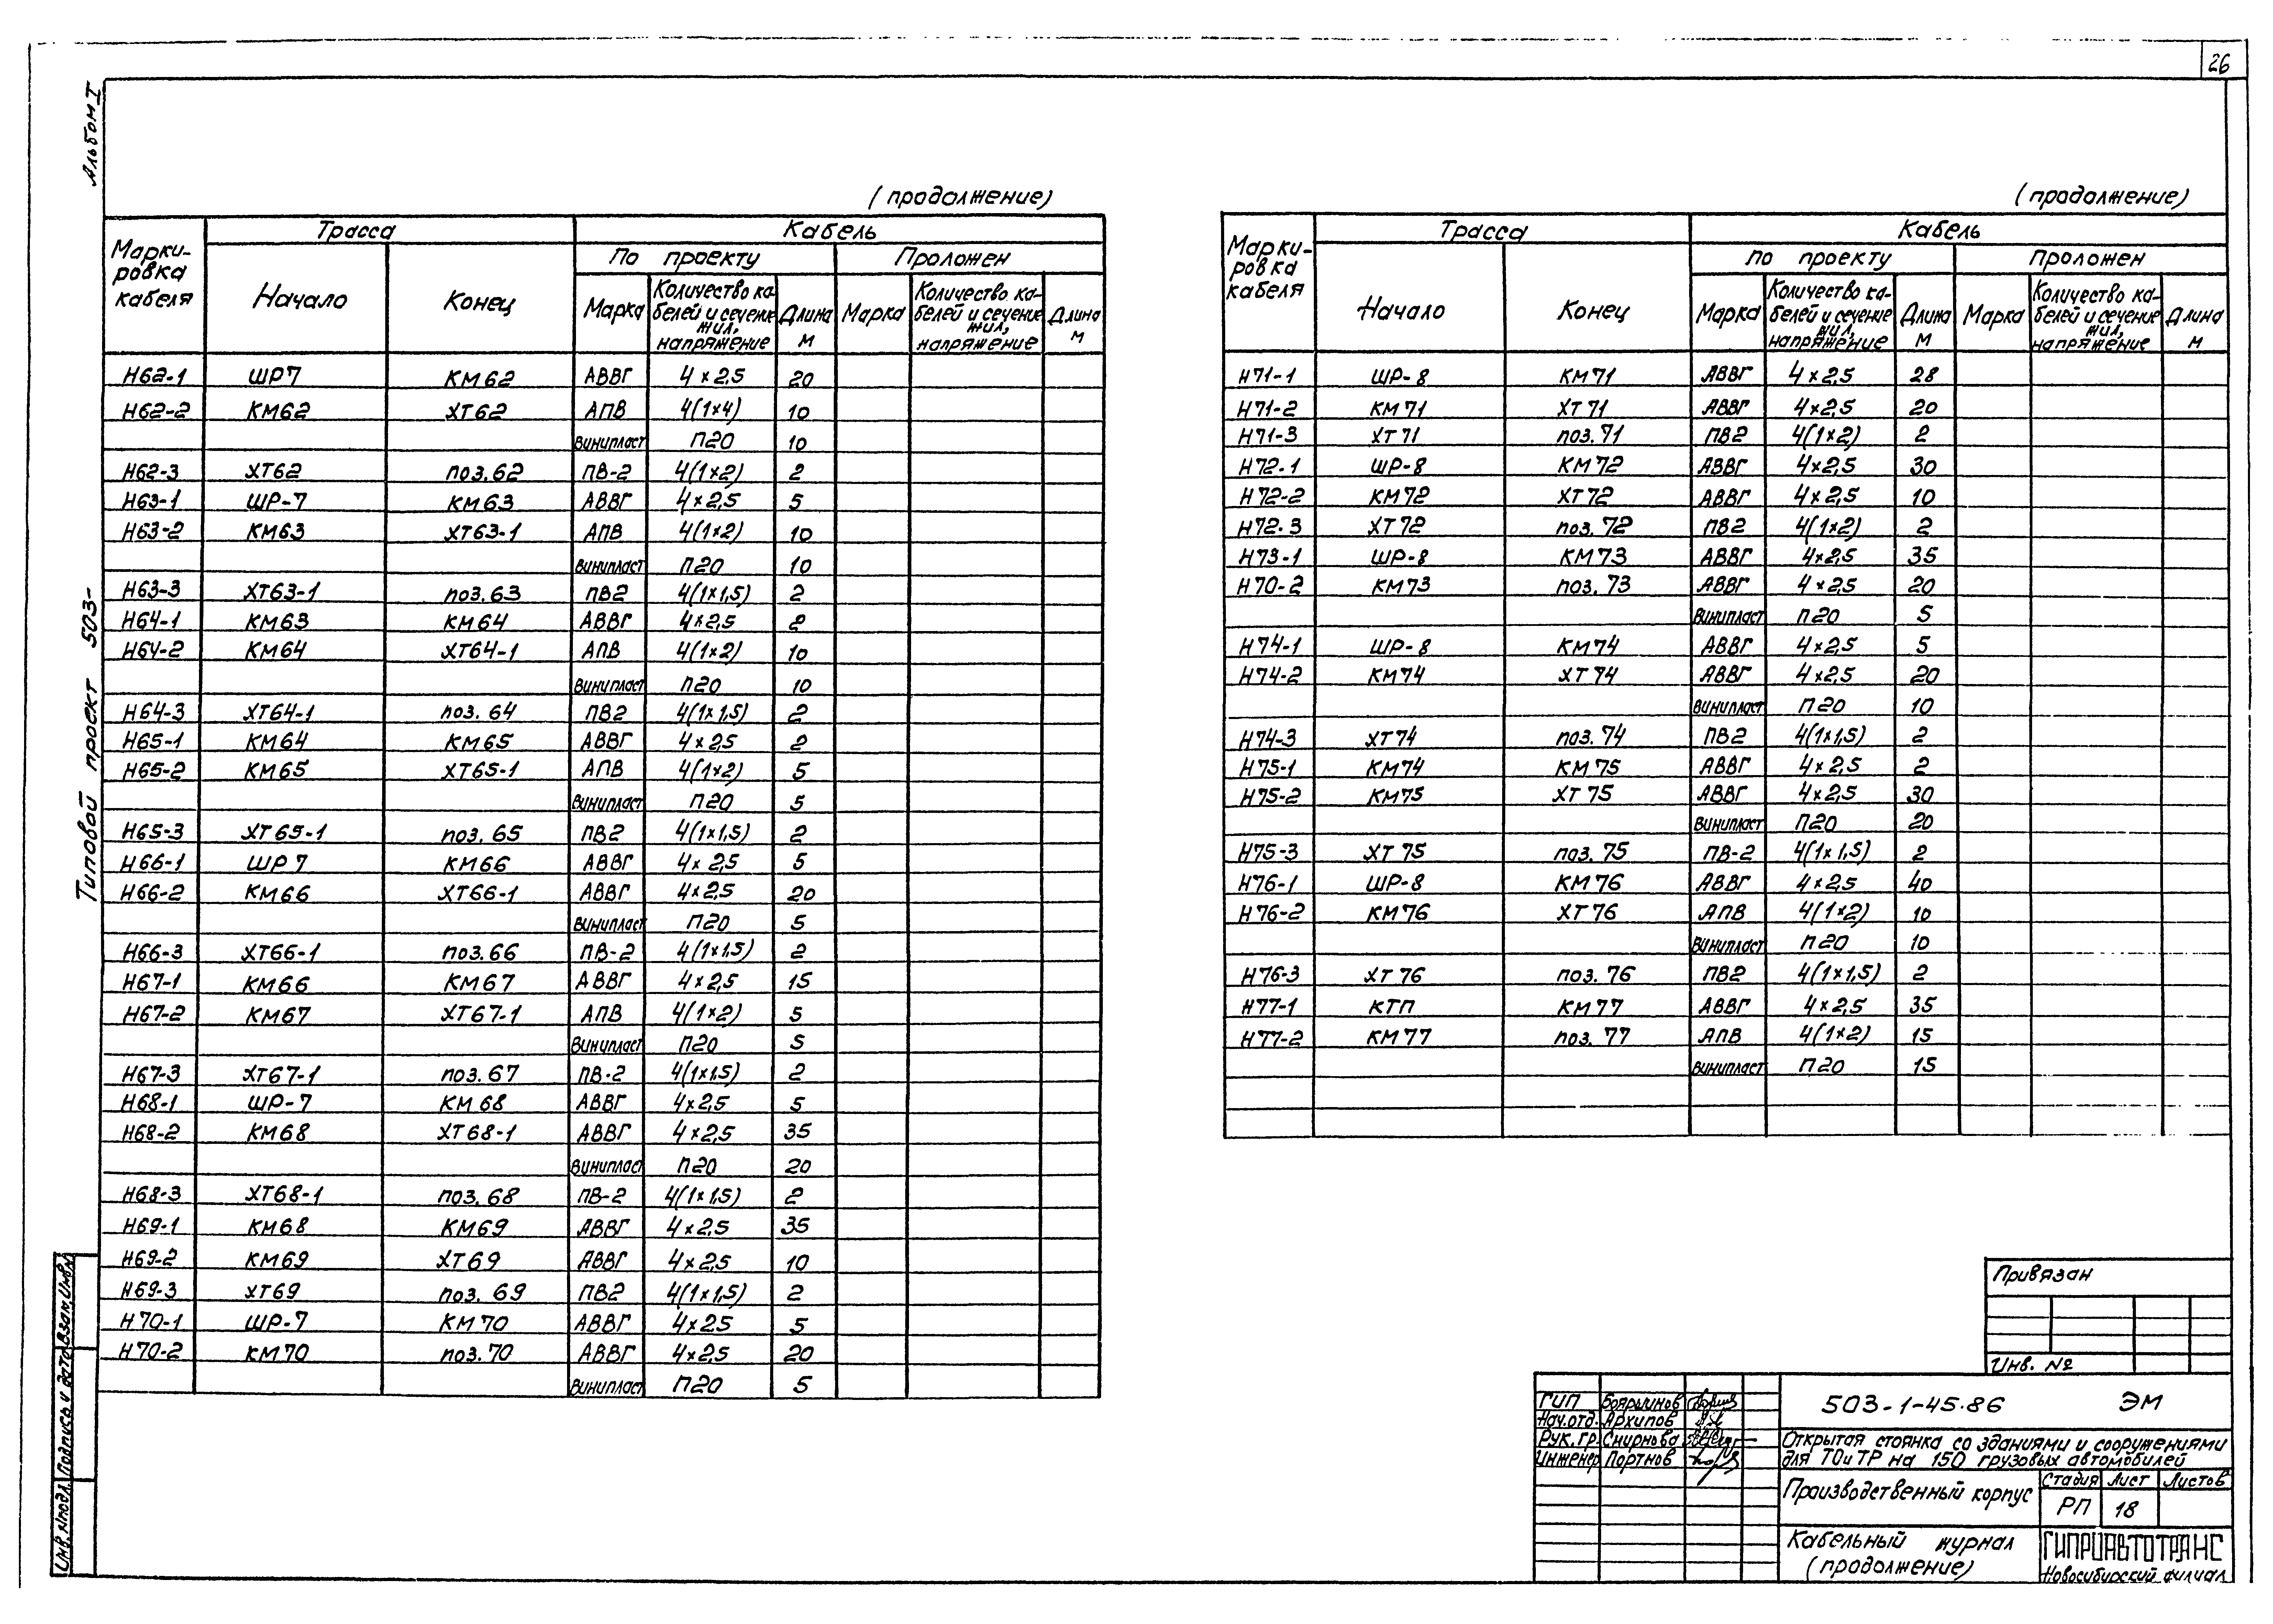 26
Альбом I
Типовой проект 503-
(продолжение)
Маркировка кабеля | Трасса | Кабель
По проекту | Проложен
Начало | Конец | Марка | Количество кабелей и сечение жил, напряжение | Длина м | Марка | Количество кабелей и сечение жил, напряжение | Длина м
Н62-1 ШР7 КМ62 АВВГ 4×2,5 20
Н62-2 КМ62 ХТ62 АПВ 4(1×4) 10
Винипласт П20 10
Н62-3 ХТ62 поз.62 ПВ-2 4(1×2) 2
Н63-1 ШР-7 КМ63 АВВГ 4×2,5 5
Н63-2 КМ63 ХТ63-1 АПВ 4(1×2) 10
Винипласт П20 10
Н63-3 ХТ63-1 поз.63 ПВ2 4(1×1,5) 2
Н64-1 КМ63 КМ64 АВВГ 4×2,5 2
Н64-2 КМ64 ХТ64-1 АПВ 4(1×2) 10
Винипласт П20 10
Н64-3 ХТ64-1 поз.64 ПВ2 4(1×1,5) 2
Н65-1 КМ64 КМ65 АВВГ 4×2,5 2
Н65-2 КМ65 ХТ65-1 АПВ 4(1×2) 5
Винипласт П20 5
Н65-3 ХТ65-1 поз.65 ПВ2 4(1×1,5) 2
Н66-1 ШР7 КМ66 АВВГ 4×2,5 5
Н66-2 КМ66 ХТ66-1 АВВГ 4×2,5 20
Винипласт П20 5
Н66-3 ХТ66-1 поз.66 ПВ-2 4(1×1,5) 2
Н67-1 КМ66 КМ67 АВВГ 4×2,5 15
Н67-2 КМ67 ХТ67-1 АПВ 4(1×2) 5
Винипласт П20 5
Н67-3 ХТ67-1 поз.67 ПВ-2 4(1×1,5) 2
Н68-1 ШР-7 КМ68 АВВГ 4×2,5 5
Н68-2 КМ68 ХТ68-1 АВВГ 4×2,5 35
Винипласт П20 20
Н68-3 ХТ68-1 поз.68 ПВ-2 4(1×1,5) 2
Н69-1 КМ68 КМ69 АВВГ 4×2,5 35
Н69-2 КМ69 ХТ69 АВВГ 4×2,5 10
Н69-3 ХТ69 поз.69 ПВ2 4(1×1,5) 2
Н70-1 ШР-7 КМ70 АВВГ 4×25 5
Н70-2 КМ70 поз.70 АВВГ 4×2,5 20
Винипласт П20 5
(продолжение)
Маркировка кабеля | Трасса | Кабель
По проекту | Проложен
Начало | Конец | Марка | Количество кабелей и сечение жил, напряжение | Длина м | Марка | Количество кабелей и сечение жил, напряжение | Длина м
Н71-1 ШР-8 КМ71 АВВГ 4×2,5 28
Н71-2 КМ71 ХТ71 АВВГ 4×2,5 20
Н71-3 ХТ71 поз.71 ПВ2 4(1×2) 2
Н72-1 ШР-8 КМ72 АВВГ 4×2,5 30
Н72-2 КМ72 ХТ72 АВВГ 4×2,5 10
Н72-3 ХТ72 поз.72 ПВ2 4(1×2) 2
Н73-1 ШР-8 КМ73 АВВГ 4×2,5 35
Н70-2 КМ73 поз.73 АВВГ 4×2,5 20
Винипласт П20 5
Н74-1 ШР-8 КМ74 АВВГ 4×2,5 5
Н74-2 КМ74 ХТ74 АВВГ 4×2,5 20
Винипласт П20 10
Н74-3 ХТ74 поз.74 ПВ2 4(1×1,5) 2
Н75-1 КМ74 КМ75 АВВГ 4×2,5 2
Н75-2 КМ75 ХТ75 АВВГ 4×2,5 30
Винипласт П20 20
Н75-3 ХТ75 поз.75 ПВ-2 4(1×1,5) 2
Н76-1 ШР-8 КМ76 АВВГ 4×2,5 40
Н76-2 КМ76 ХТ76 АПВ 4(1×2) 10
Винипласт П20 10
Н76-3 ХТ76 поз.76 ПВ2 4(1×1,5) 2
Н77-1 КТП КМ77 АВВГ 4×2,5 35
Н77-2 КМ77 поз.77 АПВ 4(1×2) 15
Винипласт П20 15
Привязан
Инв. №
ГИП Бояршинов
Нач.отд. Архипов
Рук.гр. Смирнова
Инженер Портнов
503-1-45.86 ЭМ
Открытая стоянка со зданиями и сооружениями
для ТО и ТР на 150 грузовых автомобилей
Производственный корпус
Стадия Лист Листов
РП 18
Кабельный журнал
(продолжение)
ГИПРОАВТОТРАНС
Новосибирский филиал
Взам. инв. №
Подпись и дата
Инв. № подл.